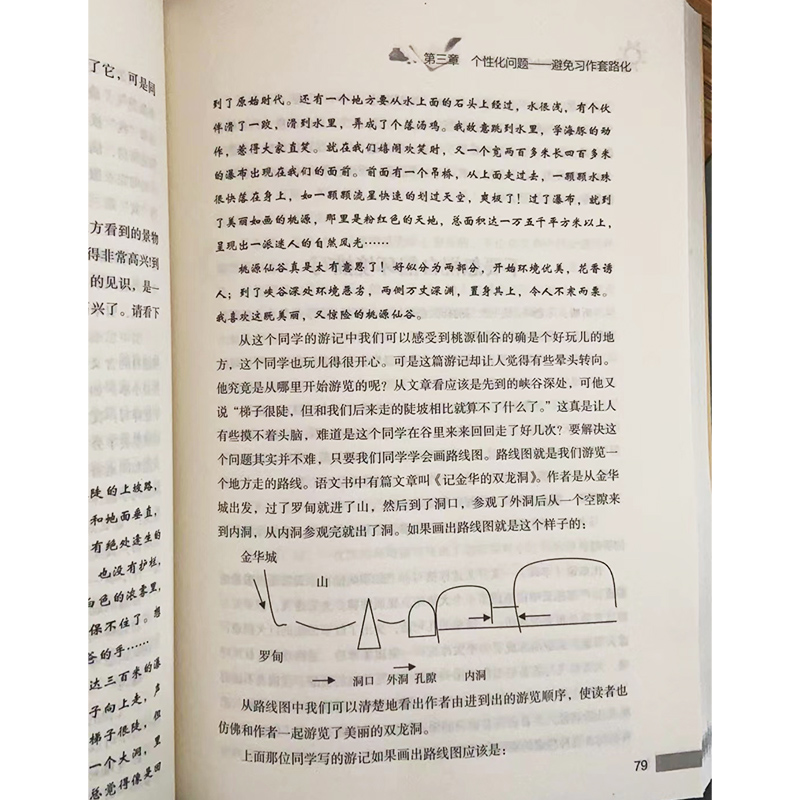 了它，可是回
方看到的景物
得非常高兴!到
的见识，是一
兴了。请看下
陡的上坡路，
和地面垂直，
有绝处逢生的
也没有护栏，
白色的浓雾里，
保不住了。想
爸的乎……
达三百米的瀑
子向上走，声
梯子很陡，但
一个大洞，里
总觉得像是回
第三章 个性化问题——避免习作套路化
到了原始时代。还有一个地方要从水上面的石头上经过，水很浅，有个伙
伴滑了一跤，滑到水里，弄成了个落汤鸡。我故意跳到水里，学海豚的动
作，惹得大家直笑。就在我们嬉闹欢笑时，又一个宽两百多米长四百多米
的瀑布出现在我们的面前。前面有一个吊桥，从上面走过去，一颗颗水珠
很快落在身上，如一颗颗流星快速的划过天空，爽极了！过了瀑布，就到
了美丽如画的桃源，那里是粉红色的天地，总面积达一万五千平方米以上，
呈现出一派迷人的自然风光……
桃源仙谷真是太有意思了！好似分为两部分，开始环境优美，花香诱
人；到了峡谷深处环境恶劣，两侧万丈深渊，置身其上，令人不寒而栗。
我喜欢这既美丽，又惊险的桃源仙谷。
从这个同学的游记中我们可以感受到桃源仙谷的确是个好玩儿的地
方，这个同学也玩儿得很开心。可是这篇游记却让人觉得有些晕头转向。
他究竟是从哪里开始游览的呢？从文章看应该是先到的峡谷深处，可他又
说“梯子很陡，但和我们后来走的陡坡相比就算不了什么了。”这真是让人
有些摸不着头脑，难道是这个同学在谷里来来回回走了好几次？要解决这
个问题其实并不难，只要我们同学学会画路线图。路线图就是我们游览一
个地方走的路线。语文书中有篇文章叫《记金华的双龙洞》。作者是从金华
城出发，过了罗甸就进了山，然后到了洞口，参观了外洞后从一个空隙来
到内洞，从内洞参观完就出了洞。如果画出路线图就是这个样子的：
金华城
山
罗甸
洞口 外洞 孔隙 内洞
从路线图中我们可以清楚地看出作者由进到出的游览顺序，使读者也
仿佛和作者一起游览了美丽的双龙洞。
上面那位同学写的游记如果画出路线图应该是：
79